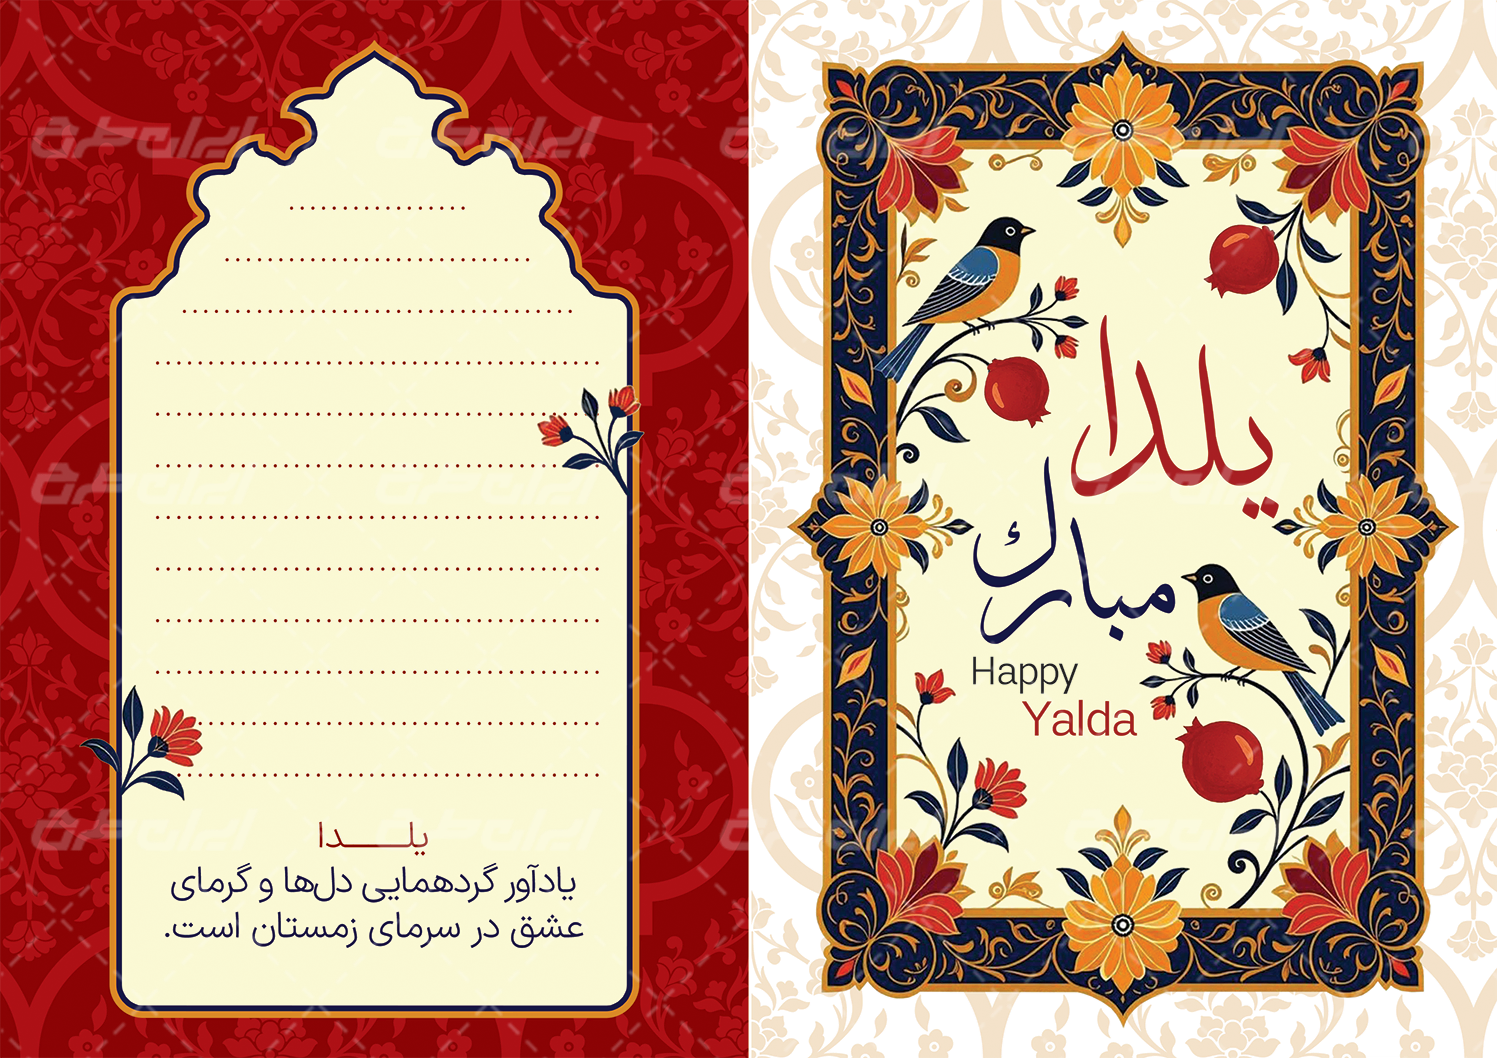 یلدا
مبارک
Happy
Yalda
یلـــدا
یادآور گردهمایی دل‌ها و گرمای
عشق در سرمای زمستان است.